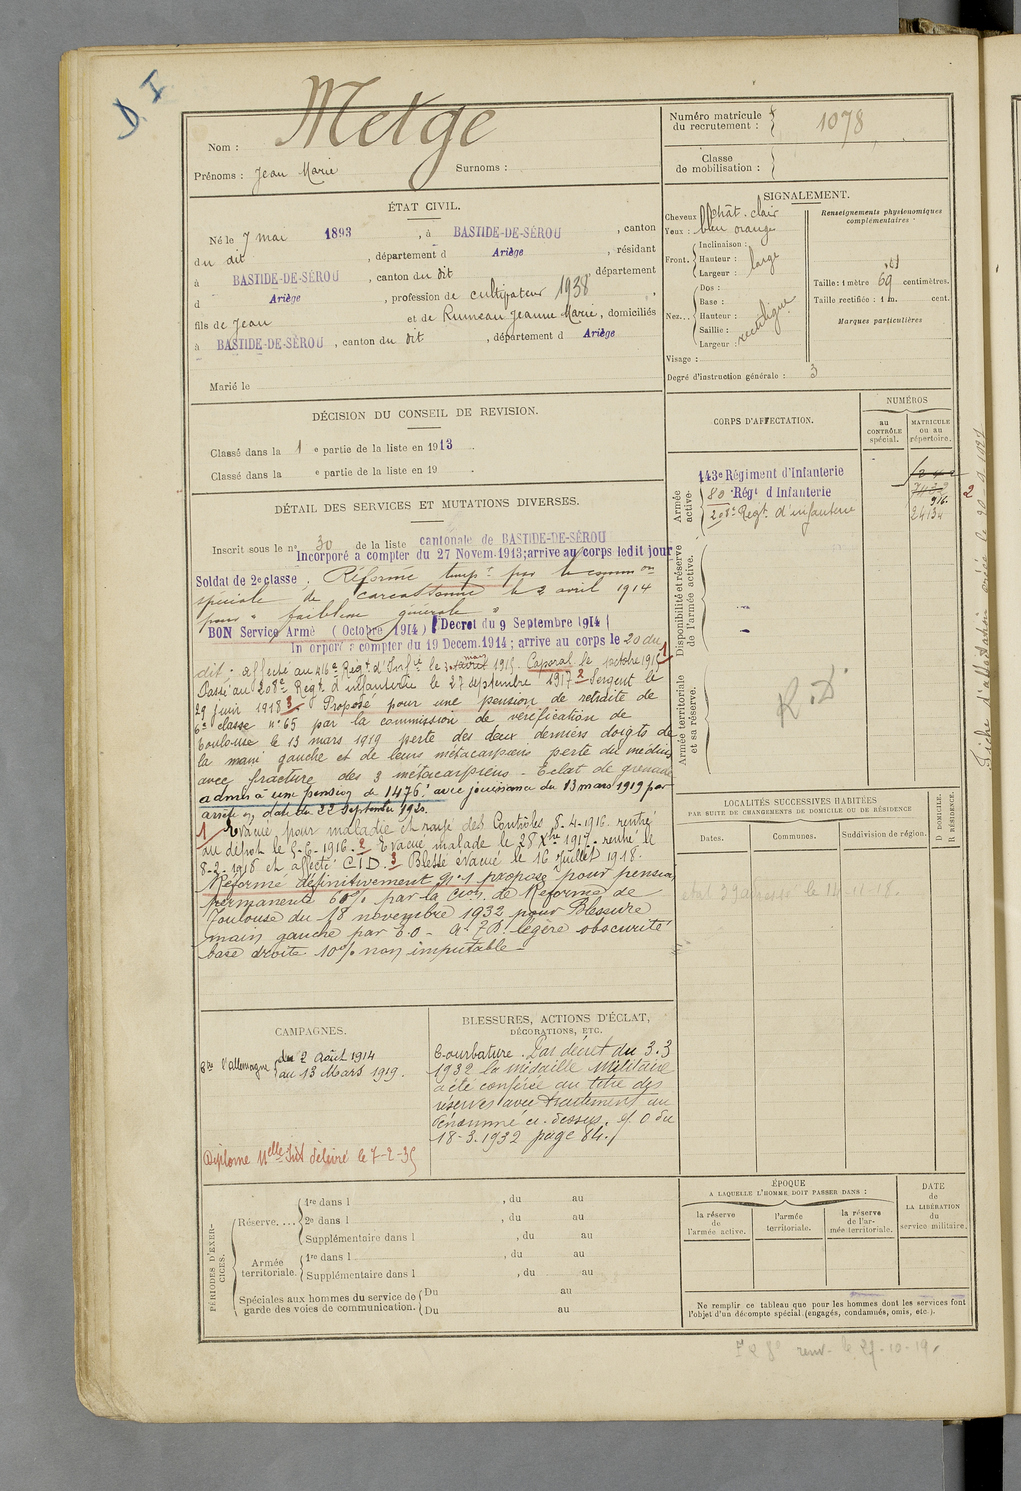 D. I
Nom : Metge
Prénoms : Jean Marie Surnoms :
Numéro matricule du recrutement : 1078
Classe de mobilisation :
ÉTAT CIVIL.
Né le 7 mai 1893, à BASTIDE-DE-SÉROU, canton
du dit, département d Ariège, résidant
à BASTIDE-DE-SÉROU, canton du dit, département
d Ariège, profession de cultivateur 1938
fils de Jean et de Rumeau Jeanne Marie, domiciliés
à BASTIDE-DE-SÉROU, canton du dit, département d Ariège
Marié le
SIGNALEMENT.
Cheveux Chât. clair
Yeux : bleu orangé
Front. Inclinaison :
Hauteur : large
Largeur :
Nez... Dos :
Base :
Hauteur : rectiligne
Saillie :
Largeur :
Visage :
Degré d'instruction générale : 3
Renseignements physionomiques complémentaires :
Taille : 1 mètre 69 centimètres.
Taille rectifiée : 1 m. cent.
Marques particulières
DÉCISION DU CONSEIL DE REVISION.
Classé dans la 1 e partie de la liste en 1913
Classé dans la e partie de la liste en 19 .
CORPS D'AFFECTATION.
NUMÉROS
au CONTRÔLE spécial.
MATRICULE ou au répertoire.
Armée active.
143e Régiment d'Infanterie
80 Régt d'Infanterie
208e Régt. d'infanterie
916.
2
Disponibilité et réserve de l'armée active.
Armée territoriale et sa réserve.
R.D
DÉTAIL DES SERVICES ET MUTATIONS DIVERSES.
Inscrit sous le n° 30 de la liste cantonale de BASTIDE-DE-SÉROU
Incorporé à compter du 27 Novem. 1913; arrive au corps ledit jour
Soldat de 2e classe. Réformé tempre par la common
spéciale de Carcassonne le 2 avril 1914
pour " faiblesse générale "
BON Service Armé (Octobre 1914) Décret du 9 Septembre 1914
Incorporé à compter du 19 Decem. 1914; arrive au corps le 20 du
dit; affecté au 416e Régt d'Infie le 1915. Caporal le 1 octobre 1915 1
Passé au 208e Régt d'infanterie le 27 septembre 1917 2 Sergent le
29 juin 1918 3. Proposé pour une pension de retraite de
6e classe n° 65 par la commission de vérification de
Toulouse le 13 mars 1919 perte des deux derniers doigts de
la main gauche et de leurs métacarpiens perte du médius
avec fracture des 3 métacarpiens - Eclat de grenade
admis à une pension de 1476f avec jouissance du 13 mars 1919 par
arrêté en date du 22 Septembre 1920.
1 Evacué pour maladie et rayé des Contrôles 8-4-1916. rentré
au dépôt le 5-6-1916. 2 Evacué malade le 28 Xbre 1917. rentré le
8-2-1918 et affecté C I D. 3 Blessé évacué le 16 Juillet 1918.
Réformé définitivement N°1 proposé pour pension
permanente 60% par la Con de Réforme de
Toulouse du 18 novembre 1932 pour Blessure
main gauche par E.O - légère obscurité
base droite 10% non imputable
LOCALITÉS SUCCESSIVES HABITÉES
PAR SUITE DE CHANGEMENTS DE DOMICILE OU DE RÉSIDENCE
Dates. Communes. Subdivision de région. D DOMICILE. R RÉSIDENCE.
CAMPAGNES.
Cre l'Allemagne du 2 Août 1914
au 13 Mars 1919.
Diplome Délivré le 7-2-35
BLESSURES, ACTIONS D'ÉCLAT,
DÉCORATIONS, ETC.
Courbature. Par décret du 3.3
1932 la médaille Militaire
a été conférée au titre des
réserves avec traitement au
dénommé ci-dessus. J. O du
18-3-1932 page 84.
PÉRIODES D'EXERCICES.
Réserve.... 1re dans l , du au
2e dans l , du au
Supplémentaire dans l , du au
Armée territoriale. 1re dans l , du au
Supplémentaire dans l , du au
Spéciales aux hommes du service de garde des voies de communication. Du au
Du au
ÉPOQUE
A LAQUELLE L'HOMME DOIT PASSER DANS :
la réserve de l'armée active.
l'armée territoriale.
la réserve de l'armée territoriale.
DATE de LA LIBÉRATION du service militaire.
Ne remplir ce tableau que pour les hommes dont les services font
l'objet d'un décompte spécial (engagés, condamnés, omis, etc.).